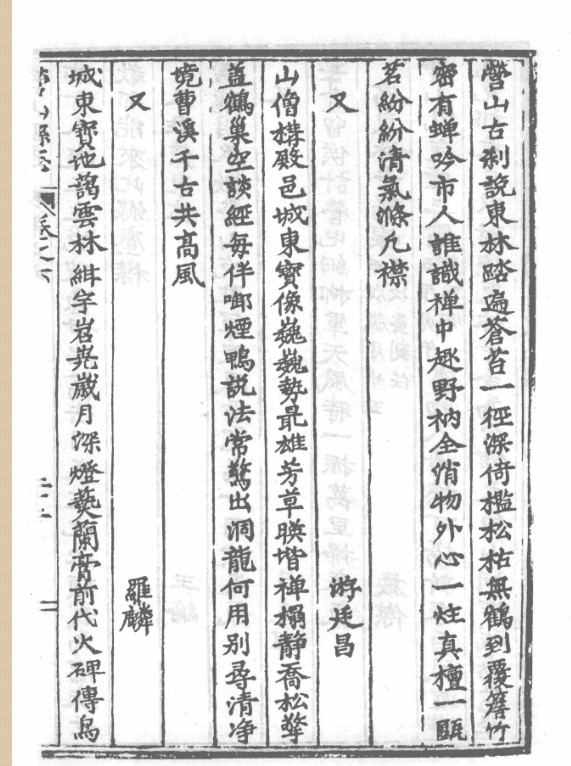 營山古刹說東林踏遍蒼苔一徑深倚檻松枯無鶴到覆簷竹
密有蟬吟市人誰識禅中趣野衲全俏物外心一炷真檀一甌
茗紛紛清氣滌凡襟
又 游廷昌
山僧構殿邑城東寶像巍巍勢最雄芳草暎堦禅榻静喬松擎
盖鶴巢空談經每伴啣煙鴨説法常驚出洞龍何用別尋清净
境曹溪千古共高風
又 羅麟
城東寶地謁雲林紺宇岧嶤歲月深燈爇蘭膏前代火碑傳鳥